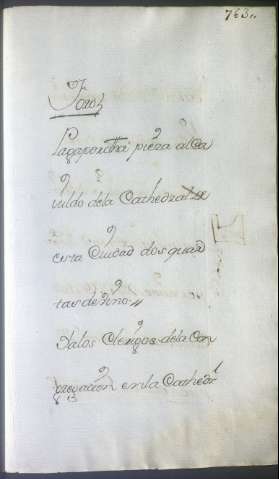 763.,
Foros
Paga por otra pieza al Ca
vildo dela Cathedral de
esta Ciudad dos quar
tas de vino,,
Ya los Clerigos dela Con
gregacion en la Cathedrl